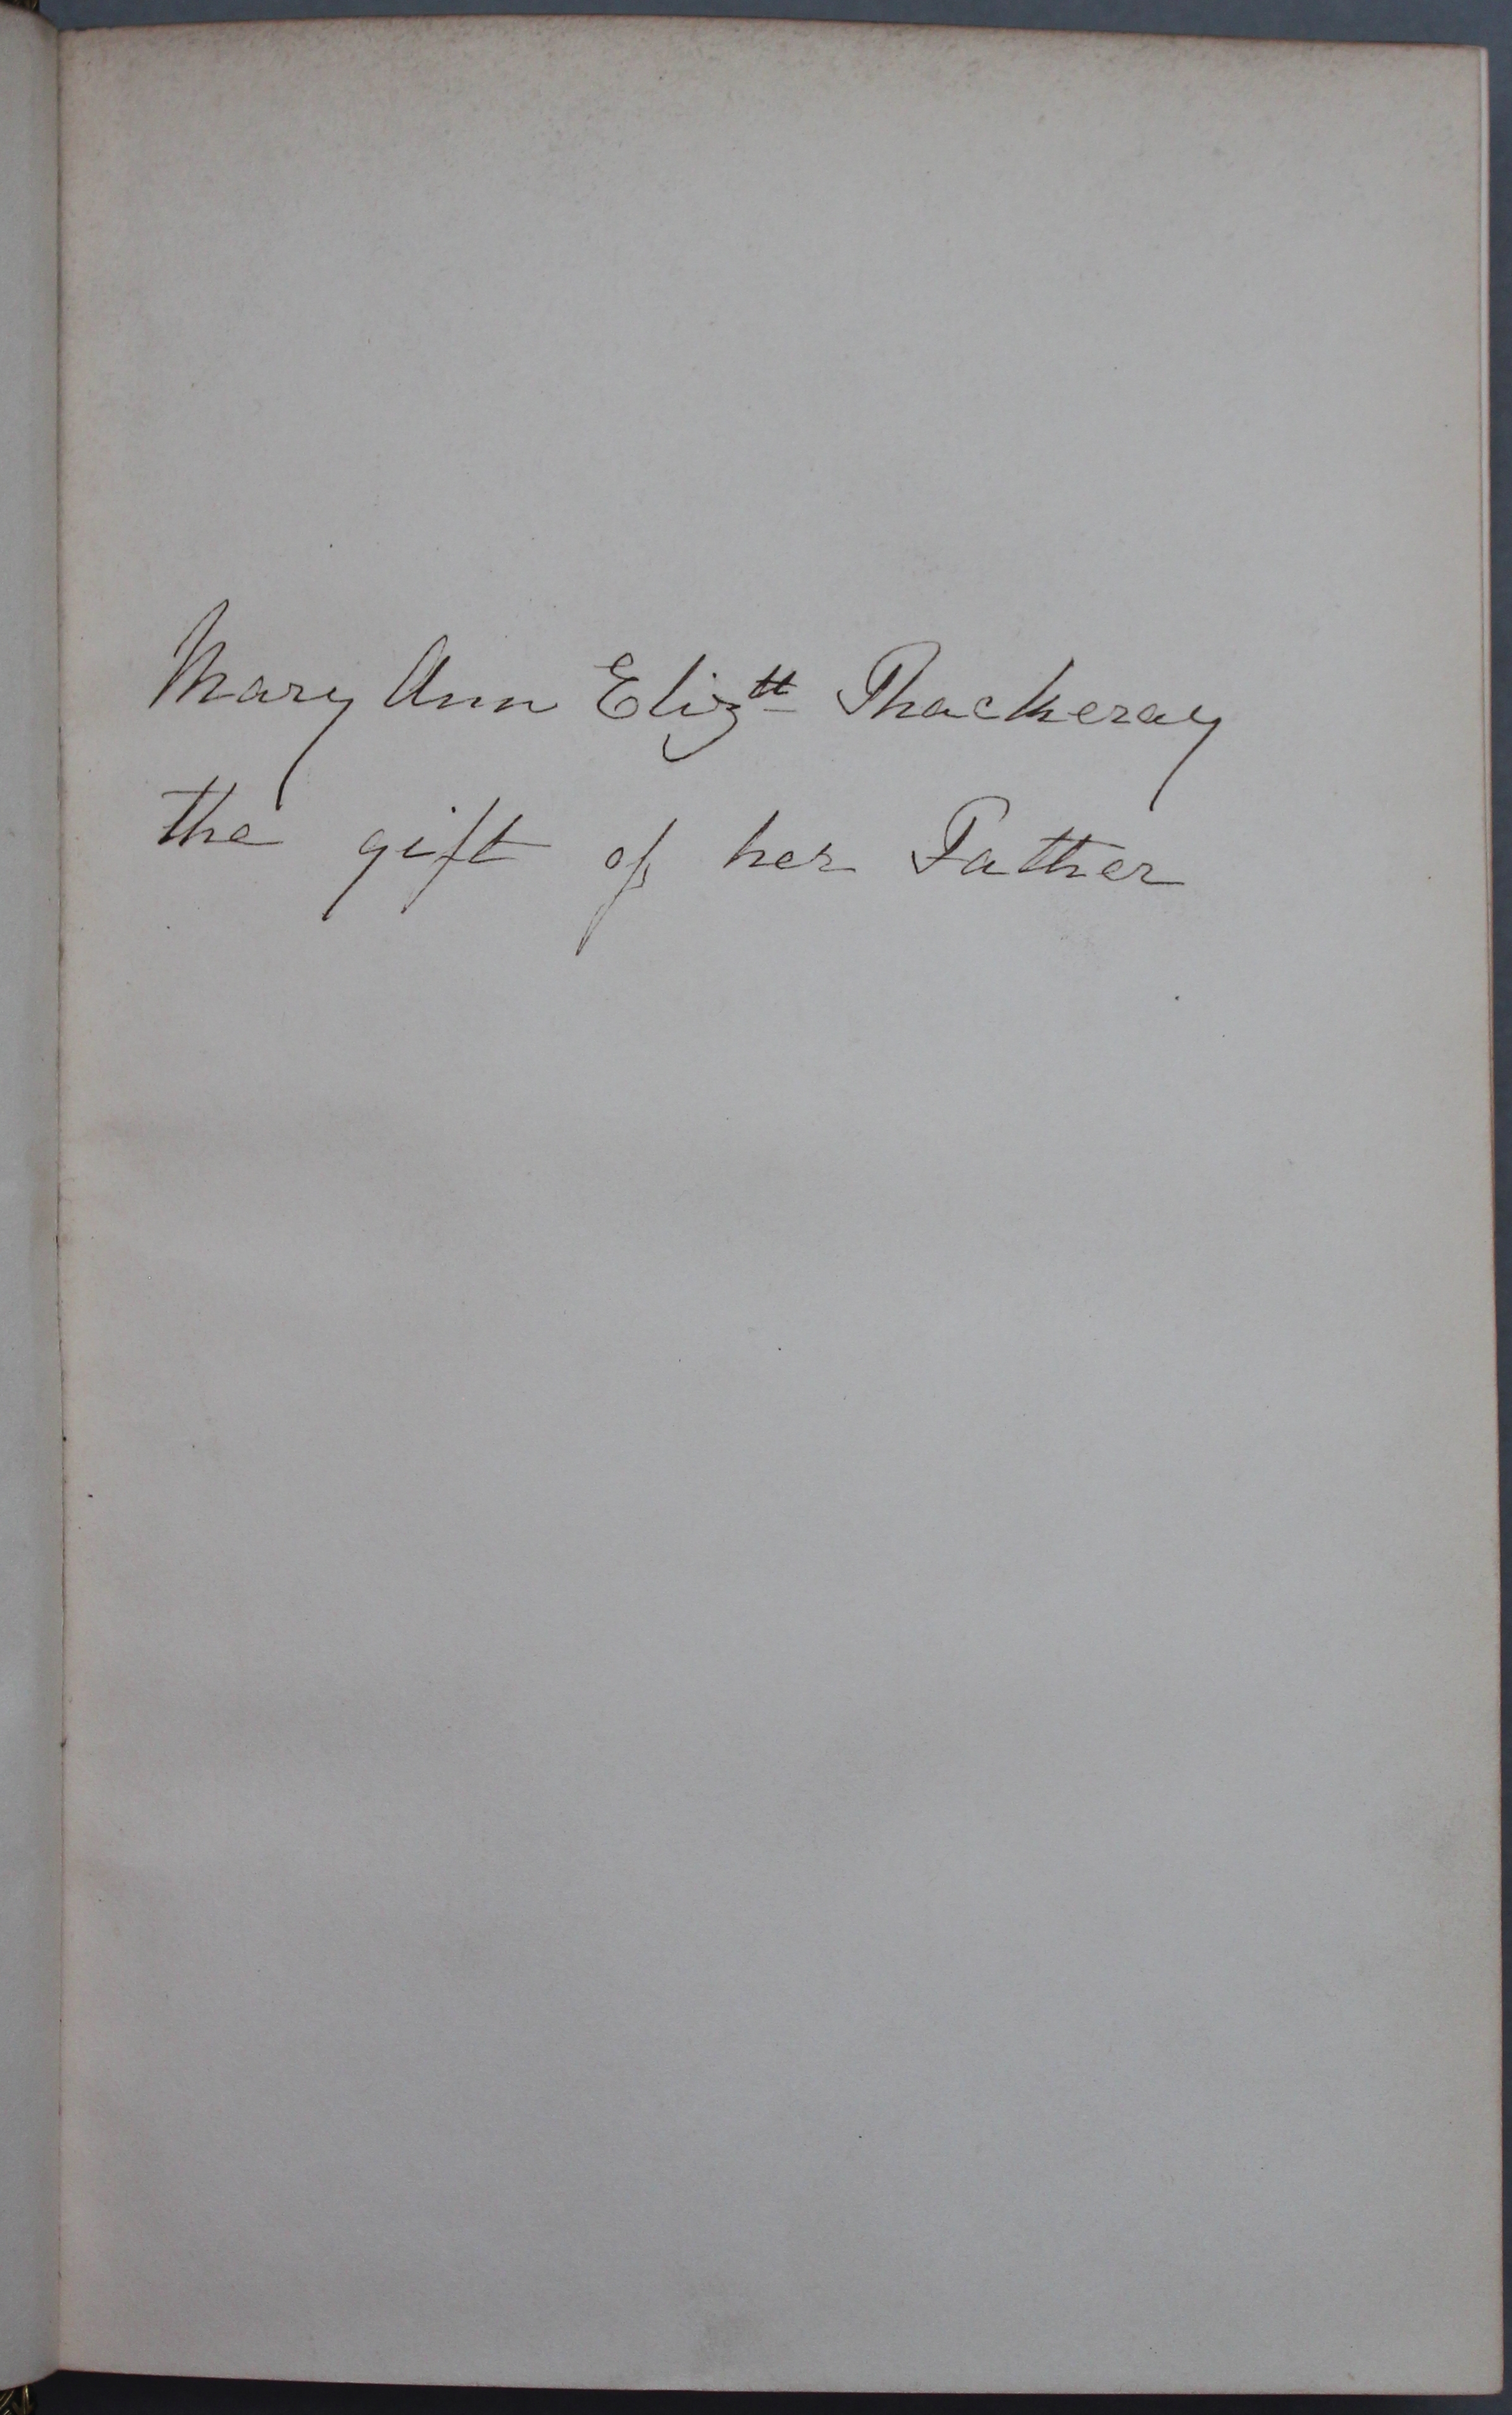 Mary Ann Elizth Thackeray
the gift of her Father